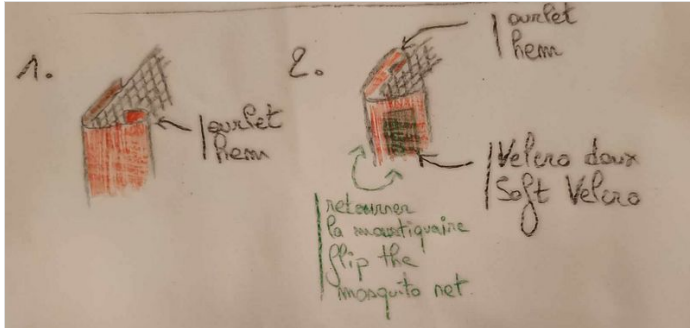 1.
ourlet
hem
2.
ourlet
hem
Velcro doux
Soft Velcro
retourner
la moustiquaire
flip the
mosquito net